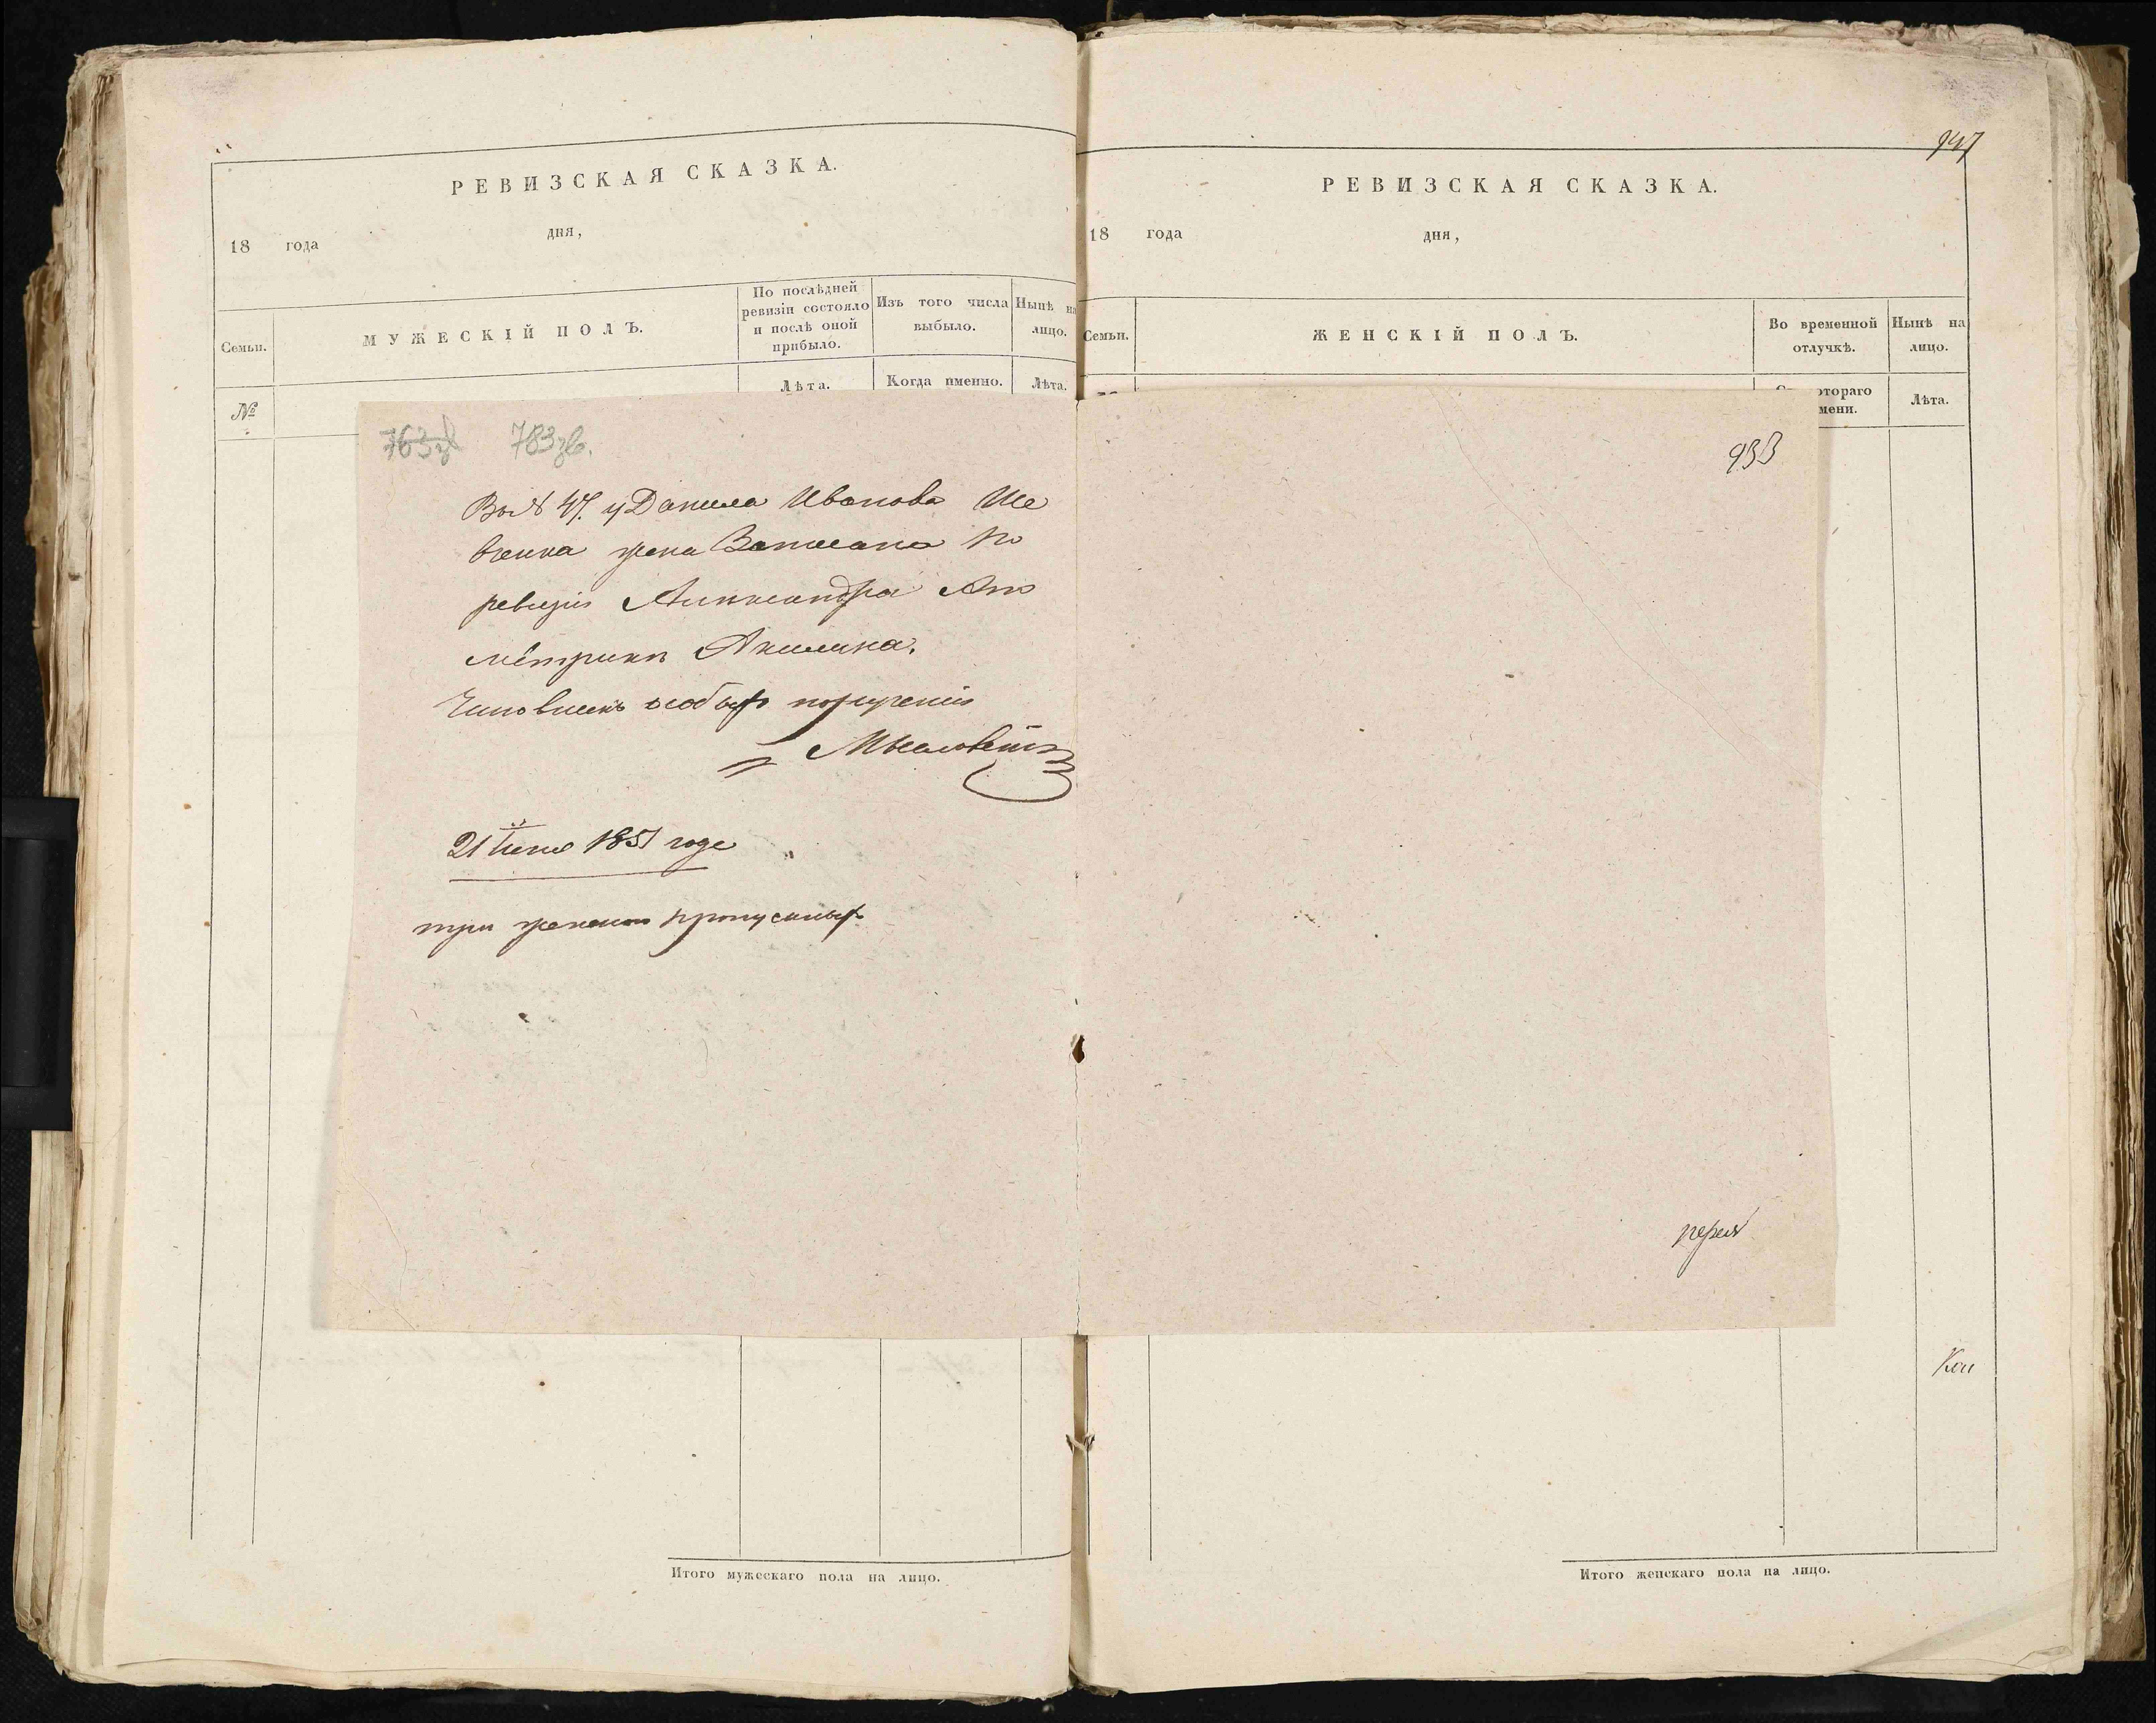 РЕВИЗСКАЯ СКАЗКА.
18 года дня,
Семьи.
МУЖЕСКІЙ ПОЛЪ.
По послѣдней ревизіи состояло и послѣ оной прибыло.
Изъ того числа выбыло.
Нынѣ на лицо.
№
Лѣта.
Когда именно.
Лѣта.
783зв.
Во № 47. у Данила Иванова Ше
вченка жена по
ревизіи Александра а по
метрикѣ Акилина.
Чиновникъ особыхъ порученій
21 Іюня 1851 года
три женска пропускныхъ
Итого мужескаго пола на лицо.
947
РЕВИЗСКАЯ СКАЗКА.
18 года дня,
Семьи.
ЖЕНСКІЙ ПОЛЪ.
Во временной отлучкѣ.
Нынѣ на лицо.
отораго
мени.
Лѣта.
933
Итого женскаго пола на лицо.